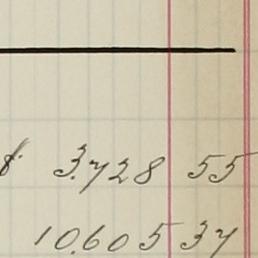 3.728 55
10.605 37